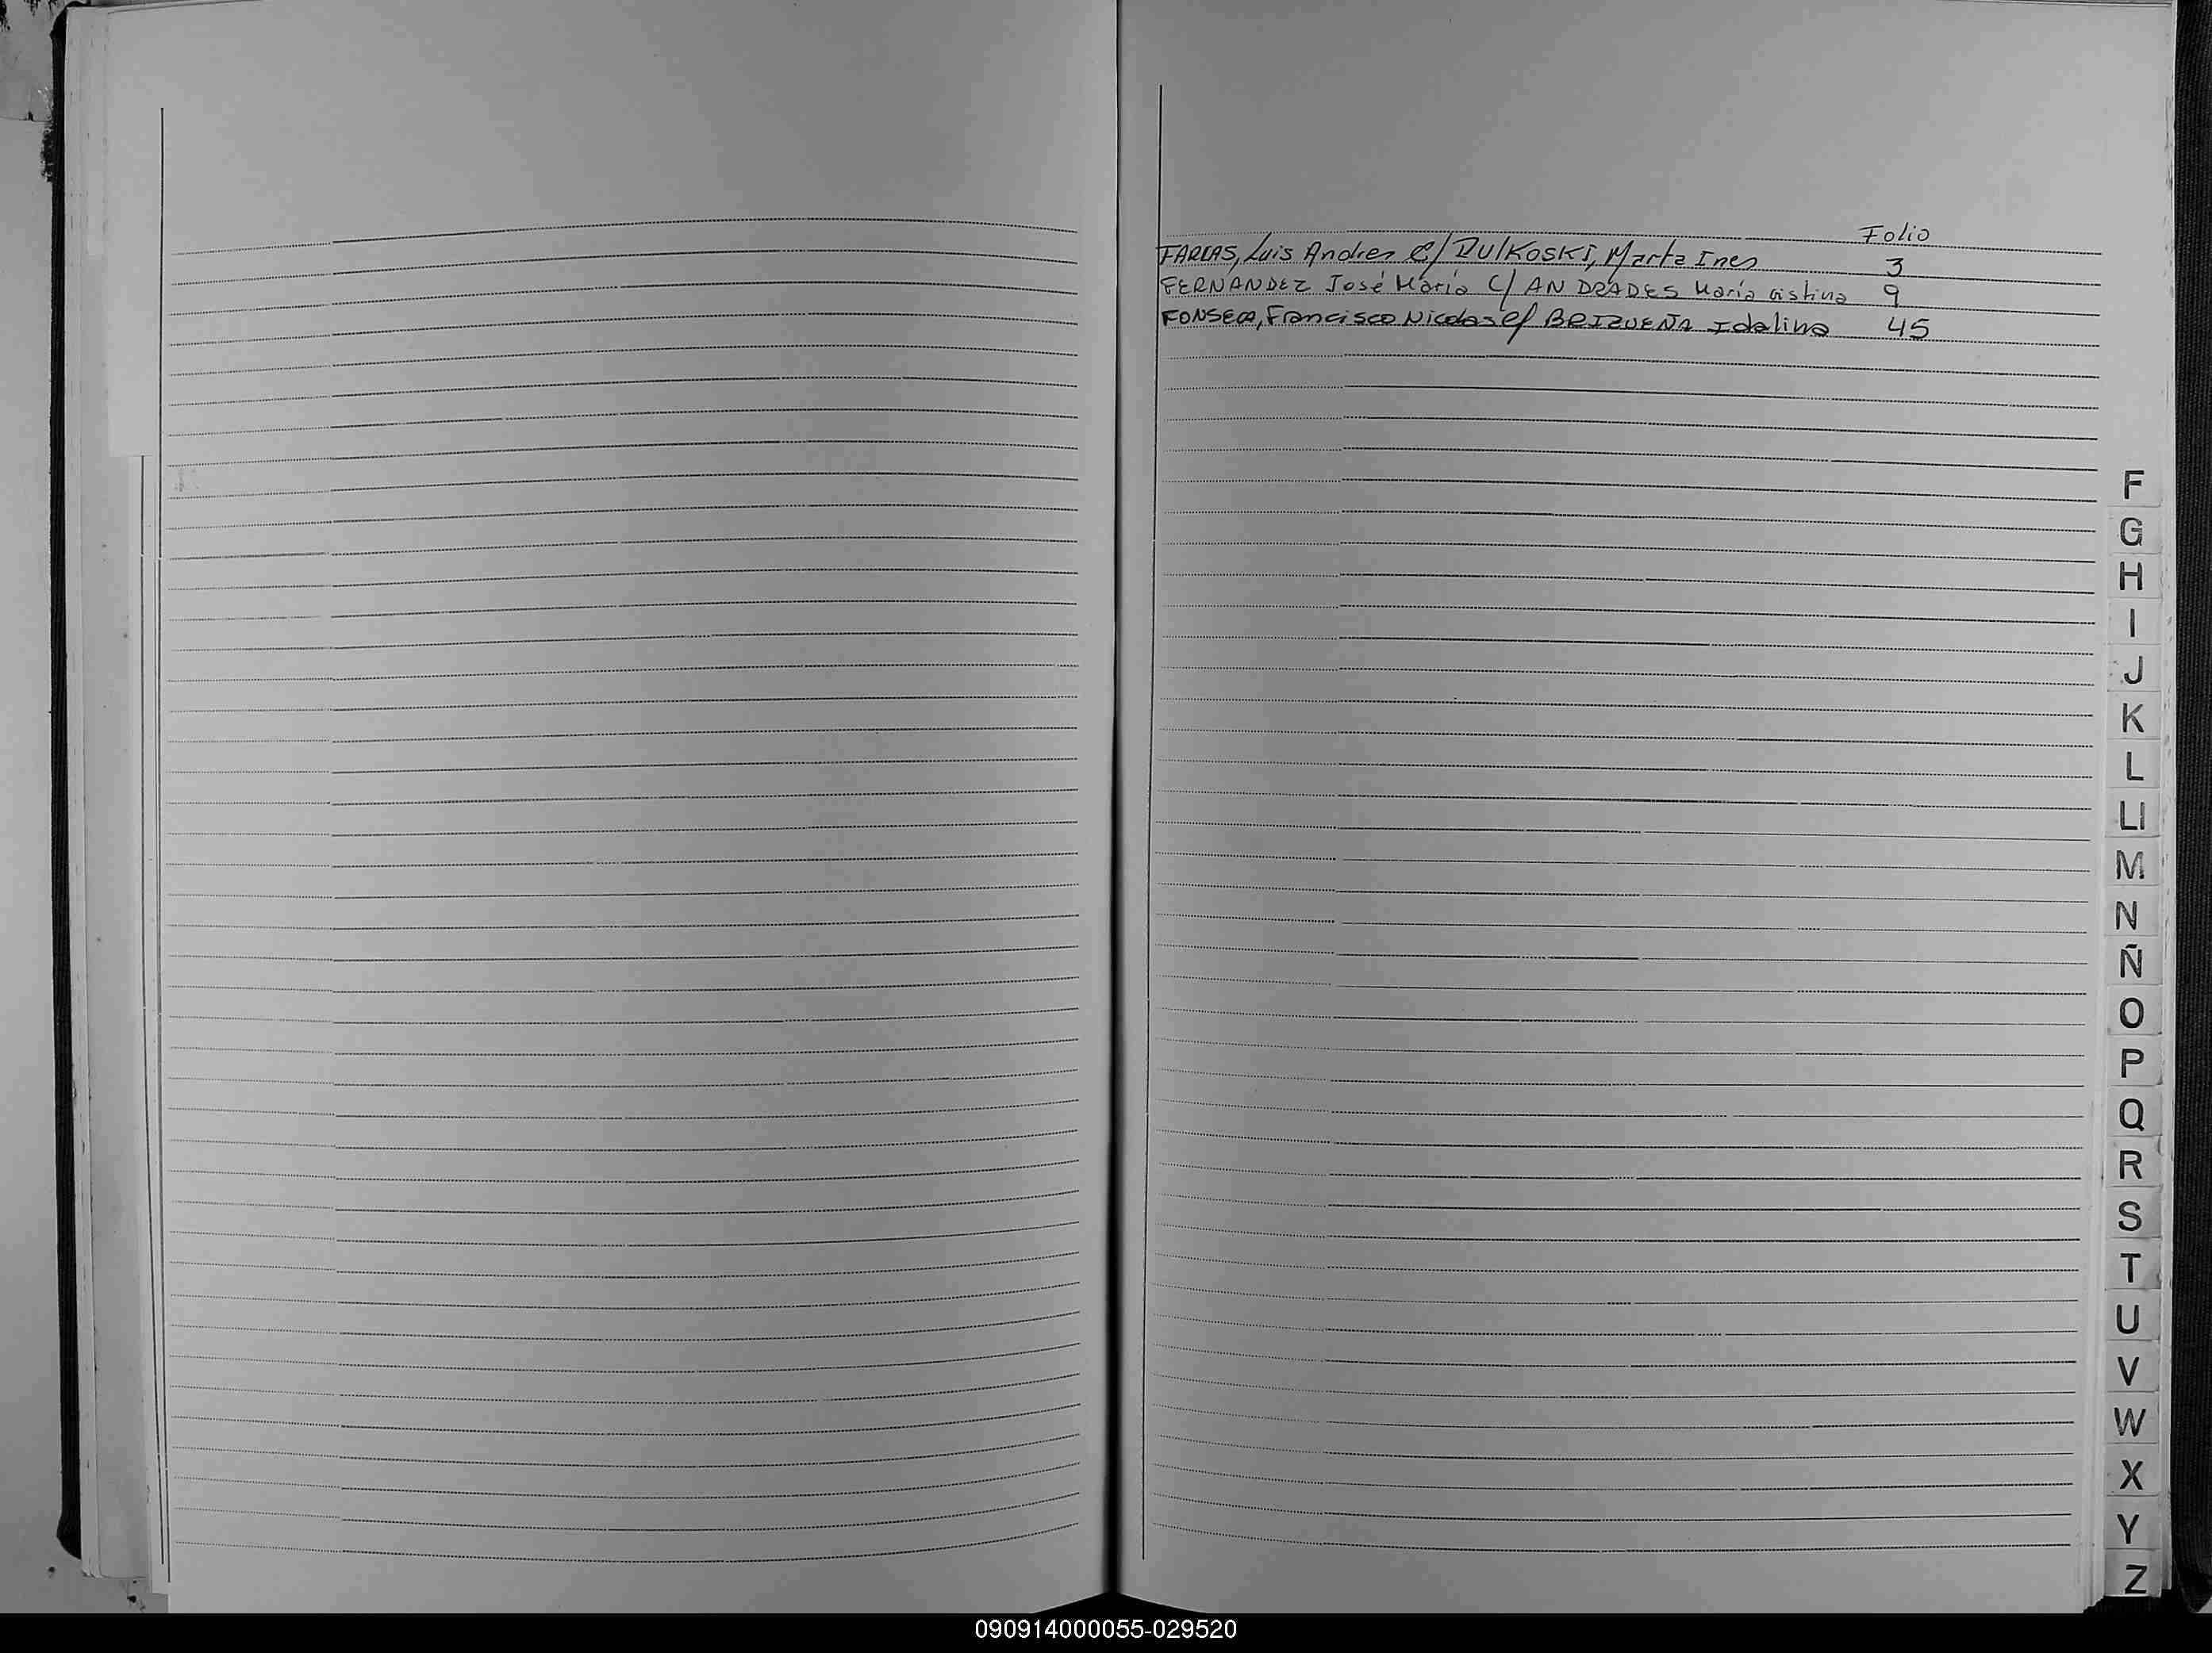 Folio
FARIAS, Luis Andres C/ DULKOSKI, Marta Ines 3
FERNANDEZ José María C/ ANDRADES María Cistina 9
FONSECA, Francisco Nicolas C/ BRIZUEÑA Idalina 45
F
G
H
I
J
K
L
Ll
M
N
Ñ
O
P
Q
R
S
T
U
V
W
X
Y
Z
090914000055-029520